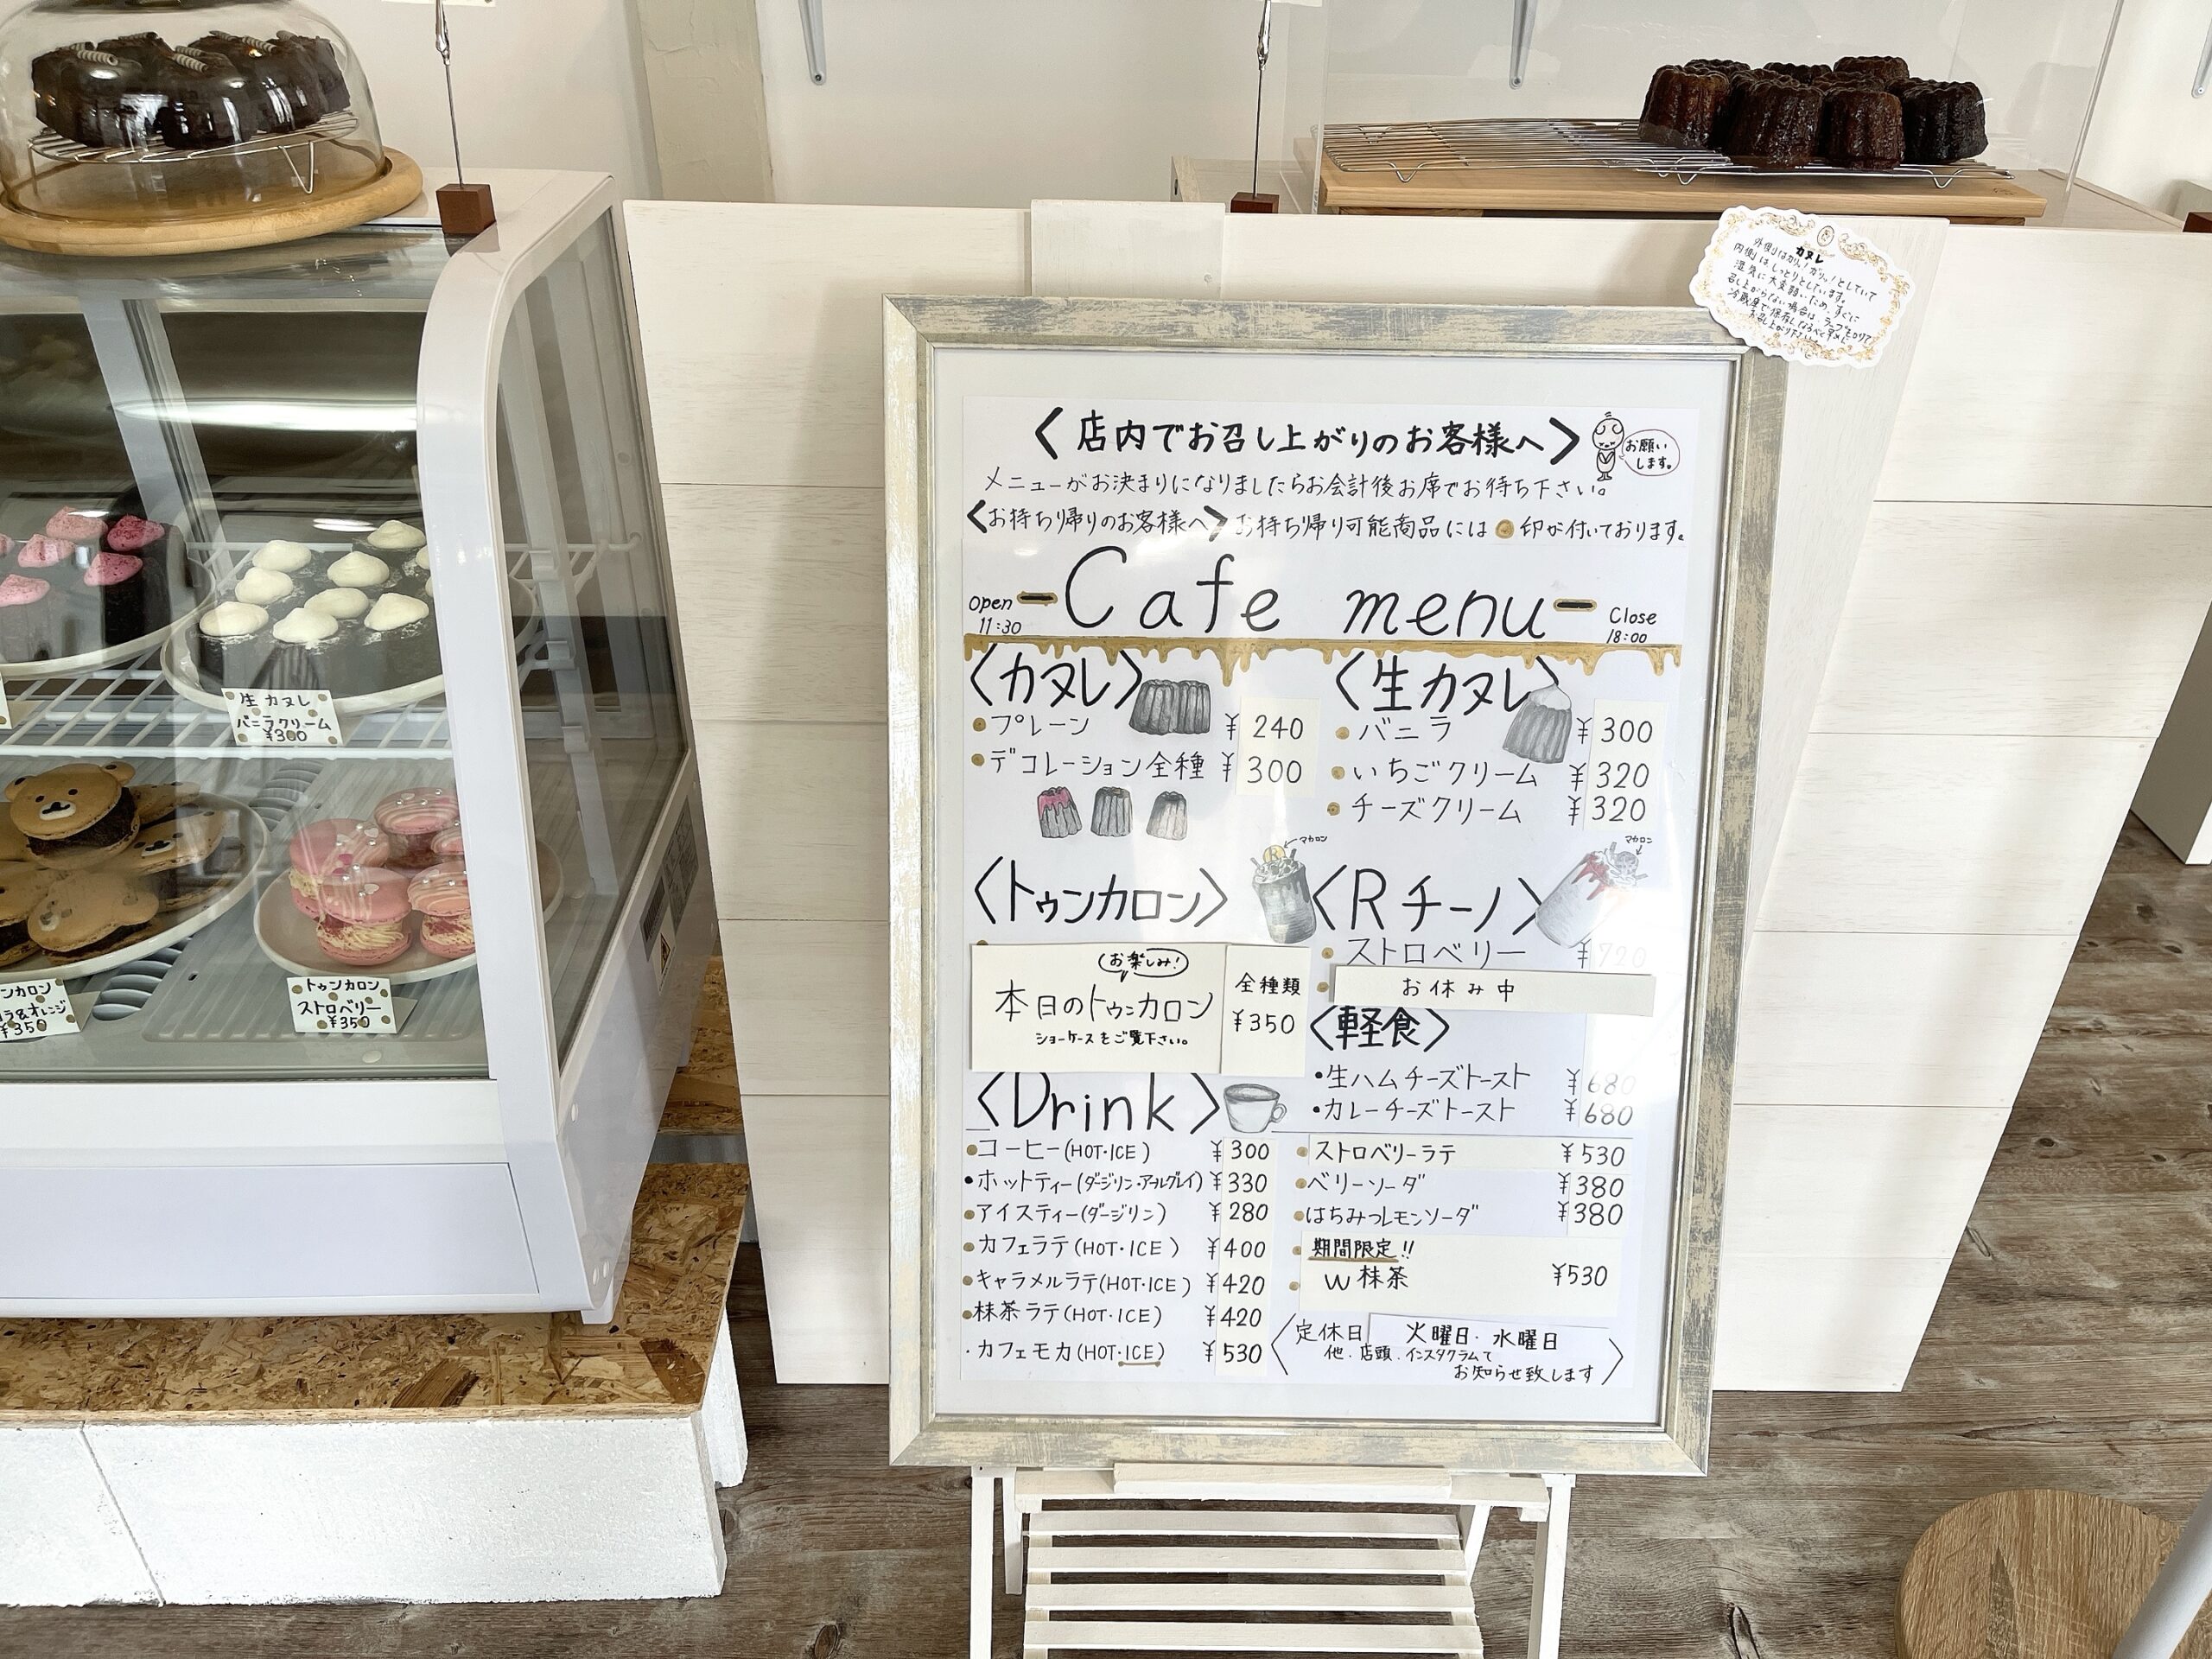 カヌレ
外側はカリッ！ガリッ！としていて
内側はしっとりとしています。
湿気に大変弱いため、すぐに
召し上がらない場合は、ラップをかけて
冷蔵庫で保存しなるべく早めに
お召し上がり下さい。
〈店内でお召し上がりのお客様へ〉
お願い
します。
メニューがお決まりになりましたらお会計後お席でお待ち下さい。
〈お持ち帰りのお客様へ〉お持ち帰り可能商品には 印が付いております。
Open
11:30
Cafe menu
Close
18:00
〈カヌレ〉
プレーン ¥240
デコレーション全種 ¥300
〈生カヌレ〉
バニラ ¥300
いちごクリーム ¥320
チーズクリーム ¥320
マカロン
〈トゥンカロン〉
お楽しみ!
本日のトゥンカロン
ショーケースをご覧下さい。
全種類
¥350
マカロン
〈Rチーノ〉
ストロベリー ¥720
お休み中
〈軽食〉
・生ハムチーズトースト ¥680
・カレーチーズトースト ¥680
〈Drink〉
コーヒー(HOT・ICE) ¥300
・ホットティー(ダージリン・アールグレイ) ¥330
アイスティー(ダージリン) ¥280
カフェラテ(HOT・ICE) ¥400
キャラメルラテ(HOT・ICE) ¥420
抹茶ラテ(HOT・ICE) ¥420
・カフェモカ(HOT・ICE) ¥530
ストロベリーラテ ¥530
ベリーソーダ ¥380
はちみつレモンソーダ ¥380
期間限定!!
W抹茶 ¥530
定休日 火曜日・水曜日
他、店頭、インスタグラムで
お知らせ致します
生カヌレ
バニラクリーム
¥300
トゥンカロン
ストロベリー
¥350
ンカロン
ラ&オレンジ
¥350